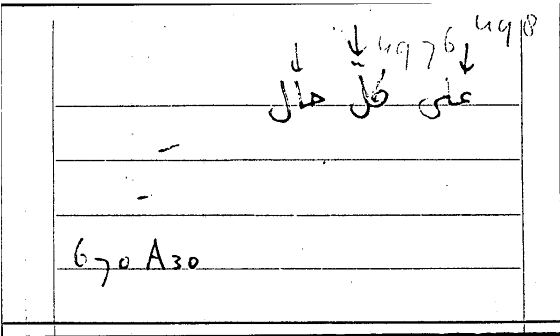 4976 498
على كلّ حال
670 A30